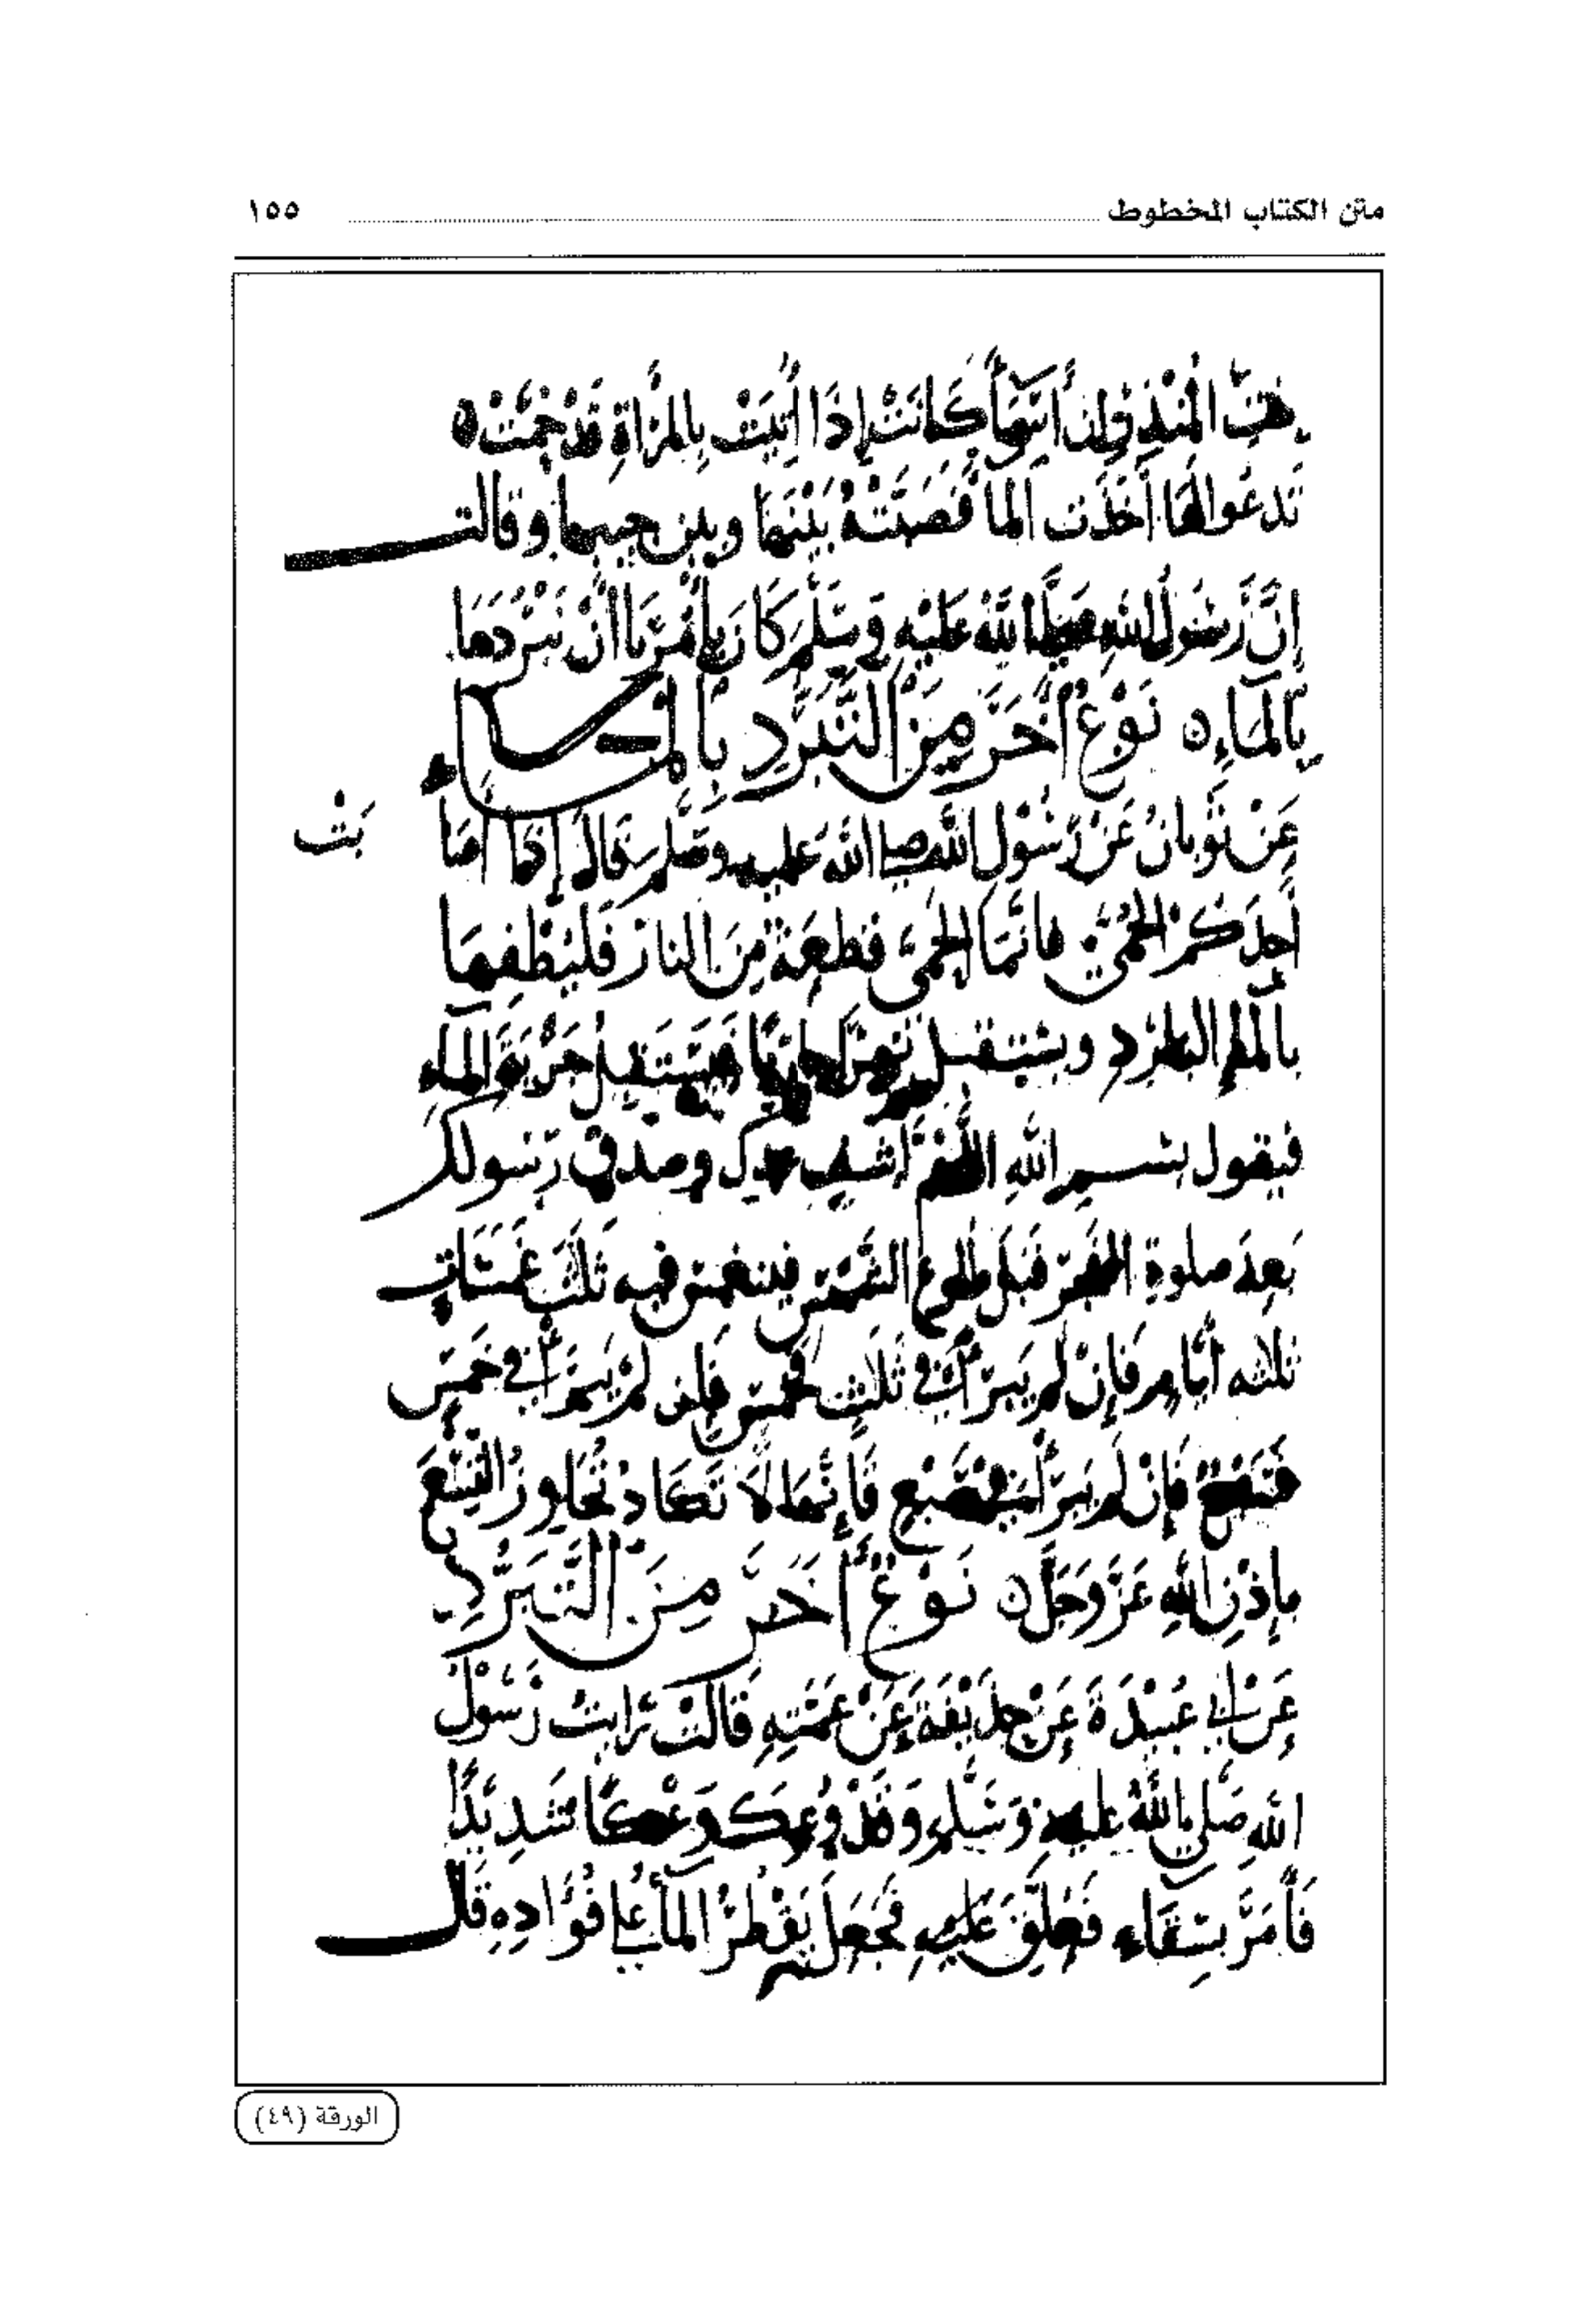 متن الكتاب المخطوط ١٥٥
المنذر أنها كانت إذا أتيت بالمرأة قد حمت ه
تدعوا لها أخذت الما فصبته بينها وبين جيبها وقالت
إنَّ رَسُول الله صَلَّى اللهُ عَلَيْهِ وَسَلَّم كَانَ يأمُرنا أنْ نَبْرُدهَا
بِالمَاءِ ه نَوْعٌ أَخَرَ مِنَ التَّبَرُّدِ بِالمَاء
عَنْ ثَوبانُ عَنْ رَسُول الله صلى الله عليه وسلم قال إذا أصا
بَتْ
أحدكم الحُمّى فانّما الحمى قطعة مِنَ النار فليُطفِهَا
بالماءِ البارد ويستقبل نهرًا جاريًا فيستقبل جَرْيَةَ الماءِ
فيقول بسم الله اللهُمَّ اشفِ عبدك وصدق رسولك
بَعدَ صلوة الفجر قبل طلوع الشمس فينغمس فيه ثلث غمسات
ثلاثه أيّام فإنْ لم يبرأ في ثلث فخمس فإن لم يبرأ في خمس
فسَبْع فإن لم يبرأ في سبع فتسع فَإنَّها لَا تَكَاد تُجاوزُ التِسْعَ
بإذْنِ اللهِ عَزَّ وَجَلّ ه نَوْعٌ أَخَرَ مِنَ التَّبَرُّدِ
عَنْ أبي عُبَيْدَةَ عَنْ حذَيْفَة عَنْ عَمَّتِهِ قَالَتْ رَايتُ رَسُول
الله صَلى اللهُ عليه وَسَلم وَقَدْ وُعِكَ وَعْكًا شَدِيدًا
فَأمَرَ بسِقَاءٍ فَعُلِّقَ عَلَيهِ فَجَعَلَ يَقْطُرُ المآءُ على فُؤَادِهِ قال
الورقة (٤٩)